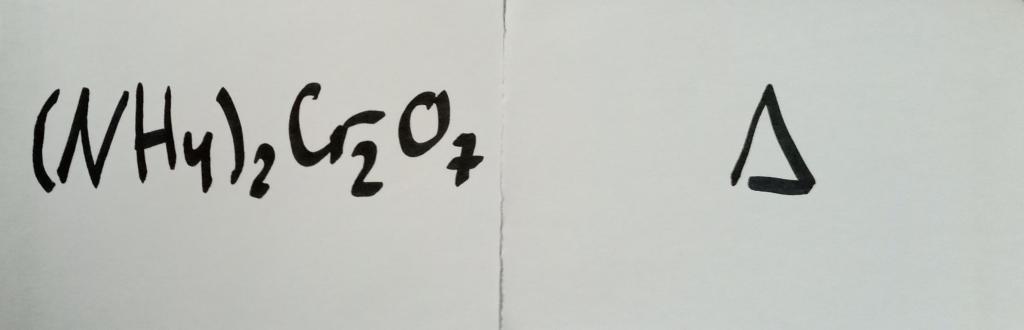 (NH₄)₂Cr₂O₇ Δ